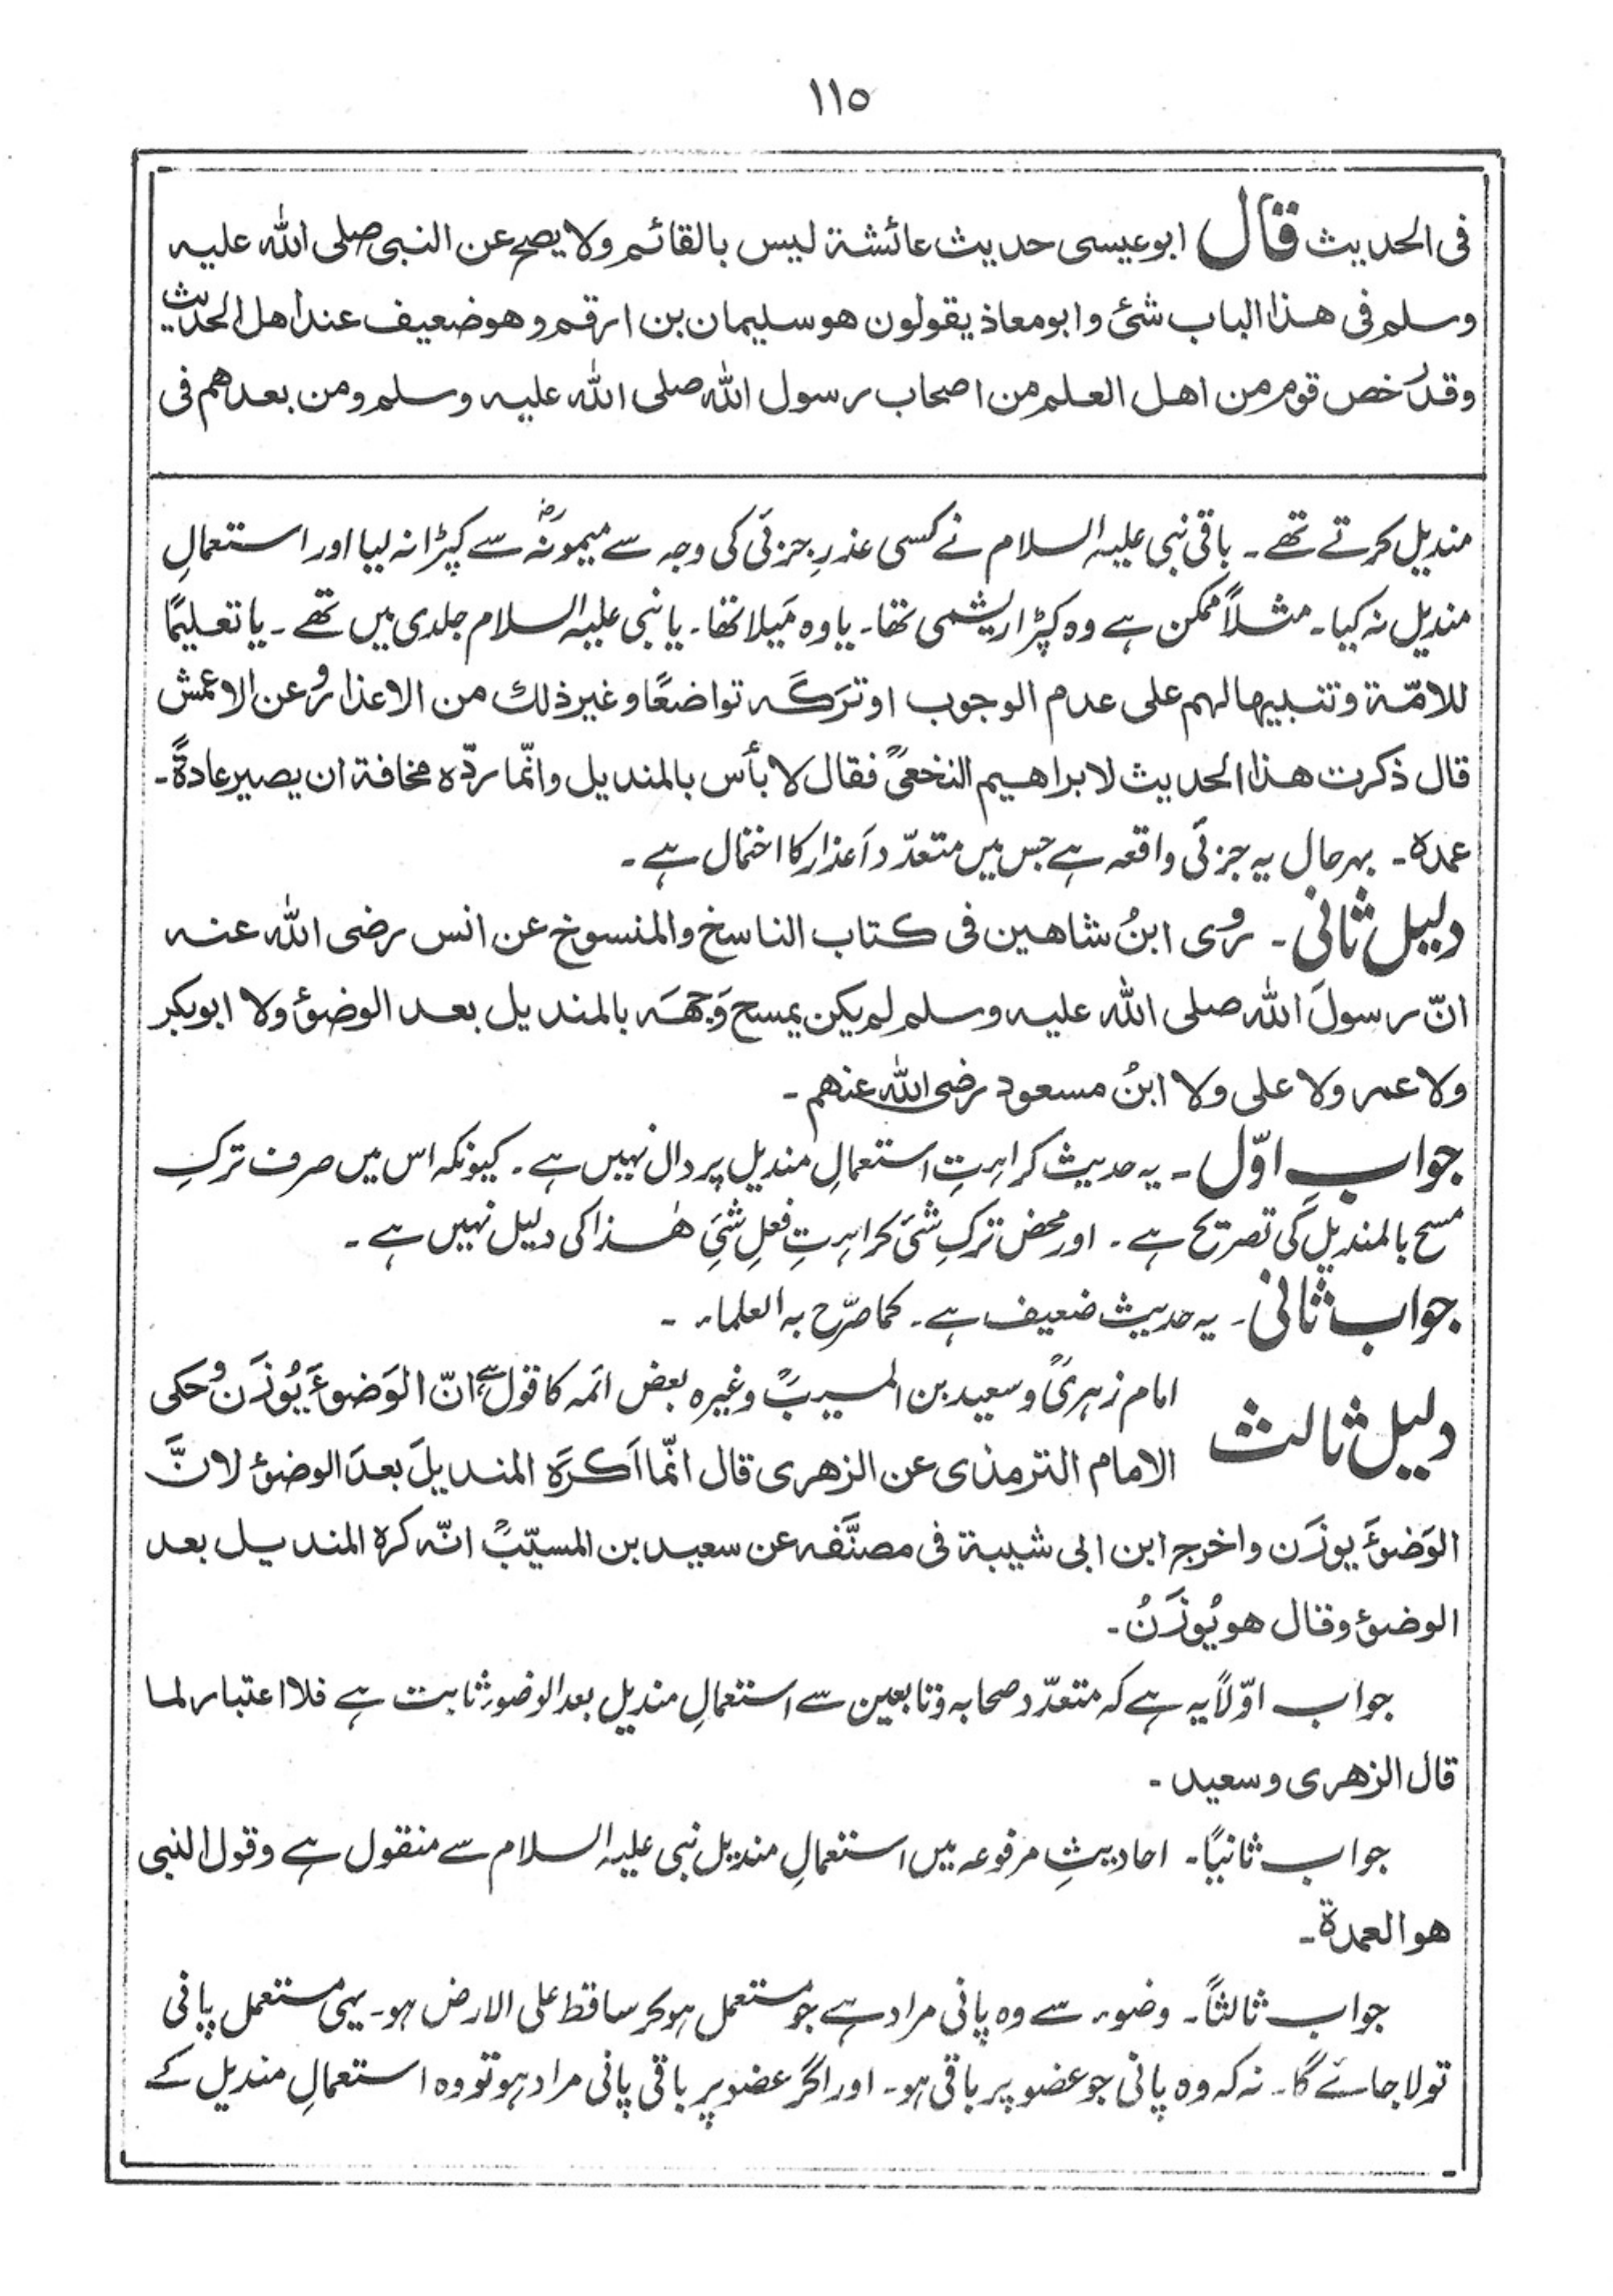 ۱۱۵
فی الحدیث قال ابوعیسی حدیث عائشة لیس بالقائم ولا یصح عن النبی صلی الله علیه
وسلم فی هذا الباب شئ وابومعاذ یقولون هو سلیمان بن ارقم وهو ضعیف عند اهل الحدیث
وقد رخص قوم من اهل العلم من اصحاب رسول الله صلی الله علیه وسلم ومن بعدهم فی
مندیل کرتے تھے۔ باقی نبی علیہ السلام نے کسی عذرِ جزئی کی وجہ سے میمونہؓ سے کپڑا نہ لیا اور استعمالِ
مندیل نہ کیا۔ مثلاً ممکن ہے وہ کپڑا ریشمی تھا۔ یا وہ مَیلا تھا۔ یا نبی علیہ السلام جلدی میں تھے۔ یا تعلیمًا
للامّة وتنبیهالهم علی عدم الوجوب اوترَکَه تواضعًا وغیرذلك من الاعذار ورُوی عن الاعمش
قال ذکرت هذا الحدیث لابراهیم النخعیؒ فقال لا بأس بالمندیل وانّما ردّه مخافة ان یصیر عادةً۔
عمده۔ بہر حال یہ جزئی واقعہ ہے جس میں متعدّد اَعذار کا احتمال ہے۔
دلیل ثانی۔ رُوی ابنُ شاهین فی کتاب الناسخ والمنسوخ عن انس رضی الله عنه
انّ رسولَ الله صلی الله علیه وسلم لم یکن یمسح وَجهَه بالمندیل بعد الوضوٴ ولا ابوبکر
ولا عمر ولا علی ولا ابنُ مسعود رضی الله عنهم۔
جوابِ اوّل۔ یہ حدیث کراہتِ استعمالِ مندیل پر دال نہیں ہے۔ کیونکہ اس میں صرف ترکِ
مسح بالمندیل کی تصریح ہے۔ اور محض ترکِ شئ کراہتِ فعلِ شئِ ھٰذا کی دلیل نہیں ہے۔
جواب ثانی۔ یہ حدیث ضعیف ہے۔ کما صرّح بہ العلماء۔
دلیل ثالث امام زہریؒ و سعید بن المسیبؒ وغیرہ بعض ائمہ کا قول ہے انّ الوَضوءَ یُوزَنُ وحکی
الامام الترمذی عن الزهری قال انّما اَکرَهَ المندیلَ بعدَ الوضوٴ لانَّ
الوَضوٴَ یوزَن واخرج ابن ابی شیبة فی مصنَّفه عن سعید بن المسیّبؒ انّه کره المندیل بعد
الوضوٴ وقال هو یُوزَنُ۔
جواب اوّلاً یہ ہے کہ متعدّد صحابہ و تابعین سے استعمالِ مندیل بعد الوضوء ثابت ہے فلا اعتبار لما
قال الزهری وسعید۔
جواب ثانیًا۔ احادیثِ مرفوعہ میں استعمالِ مندیل نبی علیہ السلام سے منقول ہے وقول النبی
هو العمدة۔
جواب ثالثاً۔ وضوء سے وہ پانی مراد ہے جو مستعمل ہو کر ساقط علی الارض ہو۔ یہی مستعمل پانی
تولا جائے گا۔ نہ کہ وہ پانی جو عضو پر باقی ہو۔ اور اگر عضو پر باقی پانی مراد ہو تو وہ استعمالِ مندیل کے